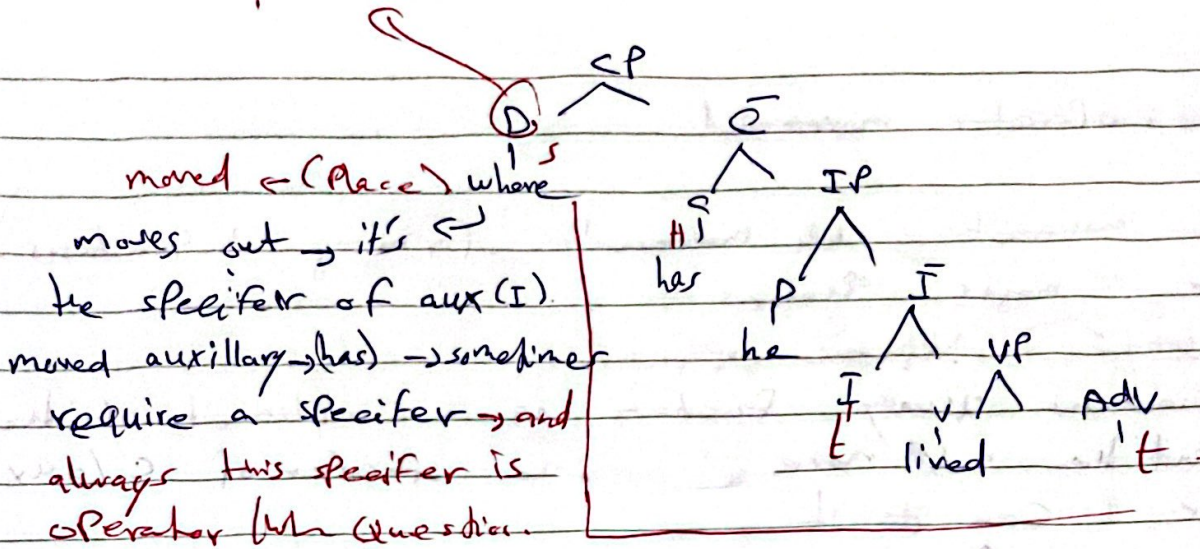 CP
D, C̄
s
moved ← (place) where IP
C
moves out → it's ↵ H
has
the speeifer of aux (I). P Ī
moved auxillary → (has) → sometimes he VP
require a speeifer → and I V Adv
t lived t
always this speeifer is
operator (wh question.